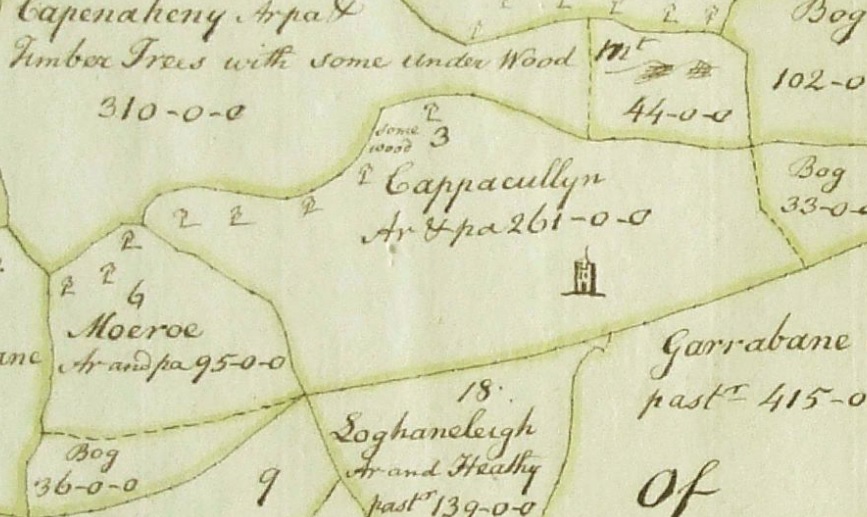 Capenaheny Arpa &
Timber Trees with some under Wood
310-0-0
Mt
44-0-0
Bog
102-0
some
wood
3
Cappacullyn
Ar & pa 261-0-0
Bog
33-0-0
6
Moeroe
Ar and pa 95-0-0
ane
Garrabane
pastr 415-0
18.
Loghaneleigh
Ar and Heathy
pastr 139-0-0
Bog
36-0-0
9
Of